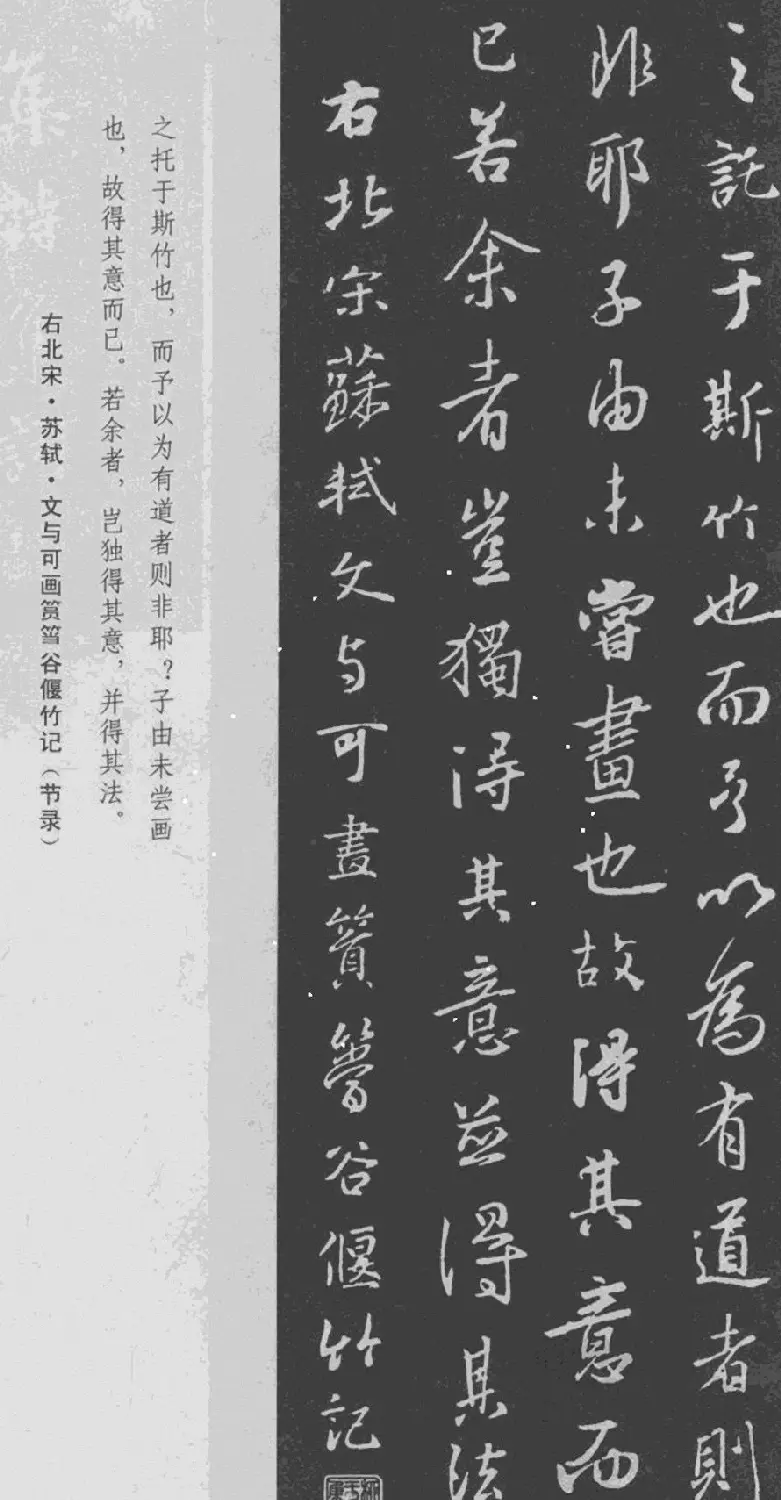 之託于斯竹也而予以為有道者則
非耶子由未嘗畫也故得其意而
已若余者豈獨得其意並得其法
右北宋蘇軾文与可畫篔簹谷偃竹記
之托于斯竹也，而予以为有道者则非耶？子由未尝画
也，故得其意而已。若余者，岂独得其意，并得其法。
右北宋·苏轼·文与可画筼筜谷偃竹记（节录）